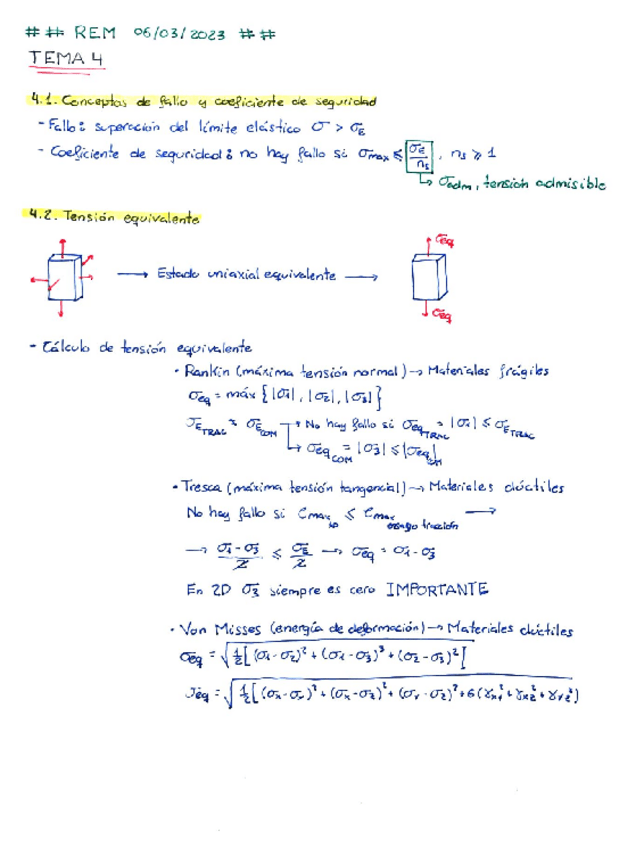 ## REM 06/03/2023 ##
TEMA 4
4.1. Conceptos de fallo y coeficiente de seguridad
- Fallo: superación del límite elástico σ > σ_E
- Coeficiente de seguridad: no hay fallo si σ_max ≤ σ_E/n_s, n_s ≥ 1
↳ σ_adm, tensión admisible
4.2. Tensión equivalente
σ_eq
→ Estado uniaxial equivalente →
σ_eq
- Cálculo de tensión equivalente
· Rankin (máxima tensión normal) → Materiales frágiles
σ_eq = máx {|σ1|, |σ2|, |σ3|}
σ_E_TRAC ≈ σ_E_COM → No hay fallo si σ_eq_TRAC = |σ1| ≤ σ_E_TRAC
↳ σ_eq_COM = |σ3| ≤ |σ_eq_COM|
· Tresca (máxima tensión tangencial) → Materiales dúctiles
No hay fallo si τ_max ≤ τ_max ensayo tracción →
→ (σ1 - σ3)/2 ≤ σ_E/2 → σ_eq = σ1 - σ3
En 2D σ3 siempre es cero IMPORTANTE
· Von Misses (energía de deformación) → Materiales dúctiles
σ_eq = √(1/2[(σ1-σ2)² + (σ1-σ3)³ + (σ2-σ3)²])
σ_eq = √(1/2[(σx-σy)² + (σx-σz)² + (σy-σz)² + 6(γxy² + γxz² + γyz²)